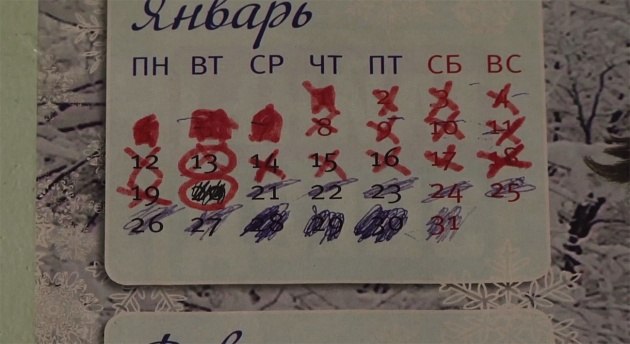 Январь
ПН ВТ СР ЧТ ПТ СБ ВС
2 3 4
7 8 9 10 11
12 13 14 15 16 17 18
19 21 22 23 24 25
26 27 28 29 30 31